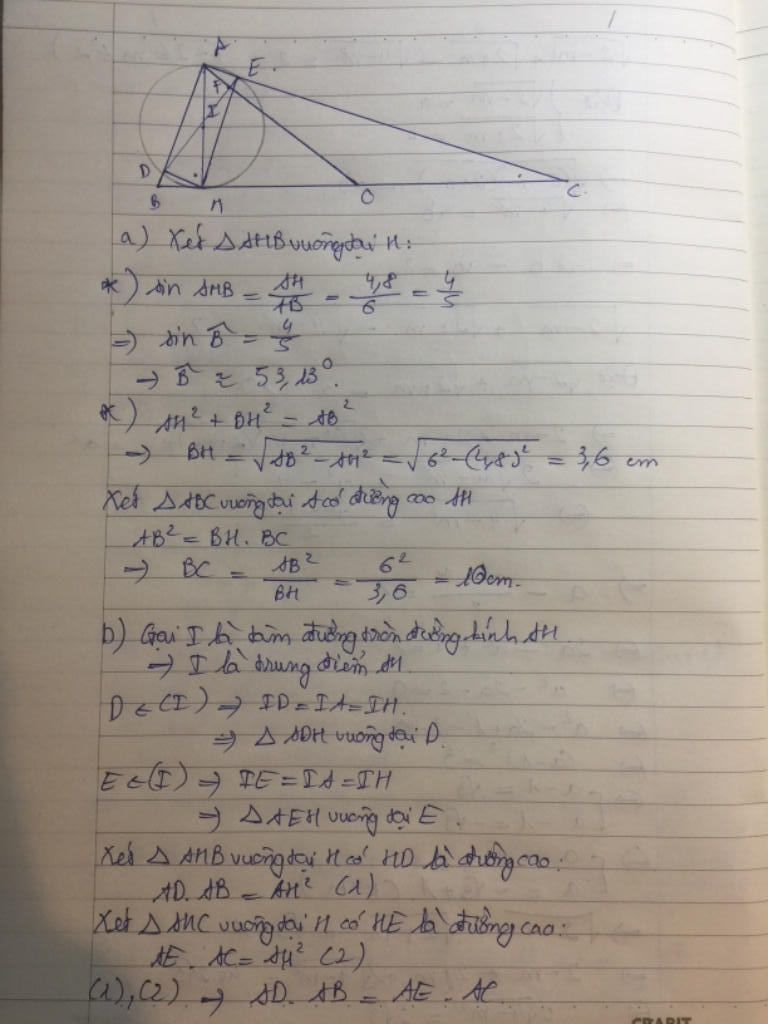 1
A
E
F
I
D
B
H
O
C
a) Xét △ AHB vuông tại H:
*) sin AHB = AH/AB = 4,8/6 = 4/5
=) sin B̂ = 4/5
→ B̂ ≈ 53,13°.
*) AH² + BH² = AB²
=) BH = √(AB² - AH²) = √(6² - (4,8)²) = 3,6 cm
Xét △ ABC vuông tại A có đường cao AH
AB² = BH. BC
=) BC = AB²/BH = 6²/3,6 = 10cm.
b) Gọi I là tâm đường tròn đường kính AH.
=) I là trung điểm AH.
D ∈ (I) =) ID = IA = IH.
=) △ ADH vuông tại D.
E ∈ (I) =) IE = IA = IH
=) △ AEH vuông tại E.
Xét △ AHB vuông tại H có HD là đường cao:
AD. AB = AH² (1)
Xét △ AHC vuông tại H có HE là đường cao:
AE. AC = AH² (2)
(1), (2) =) AD. AB = AE. AC